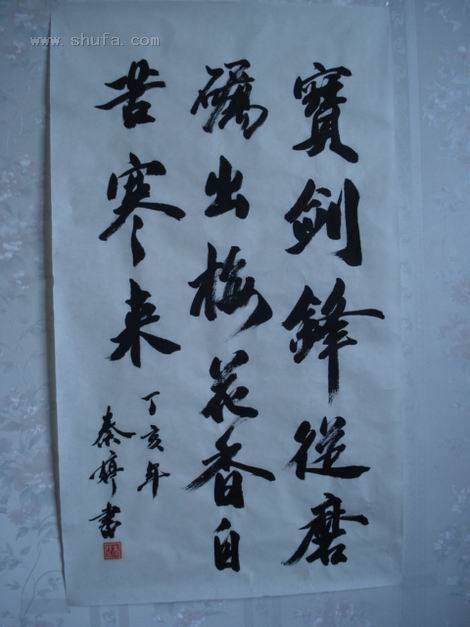 寶劍鋒從磨
礪出梅花香自
苦寒来
丁亥年
秦婷書
www.shufa.com